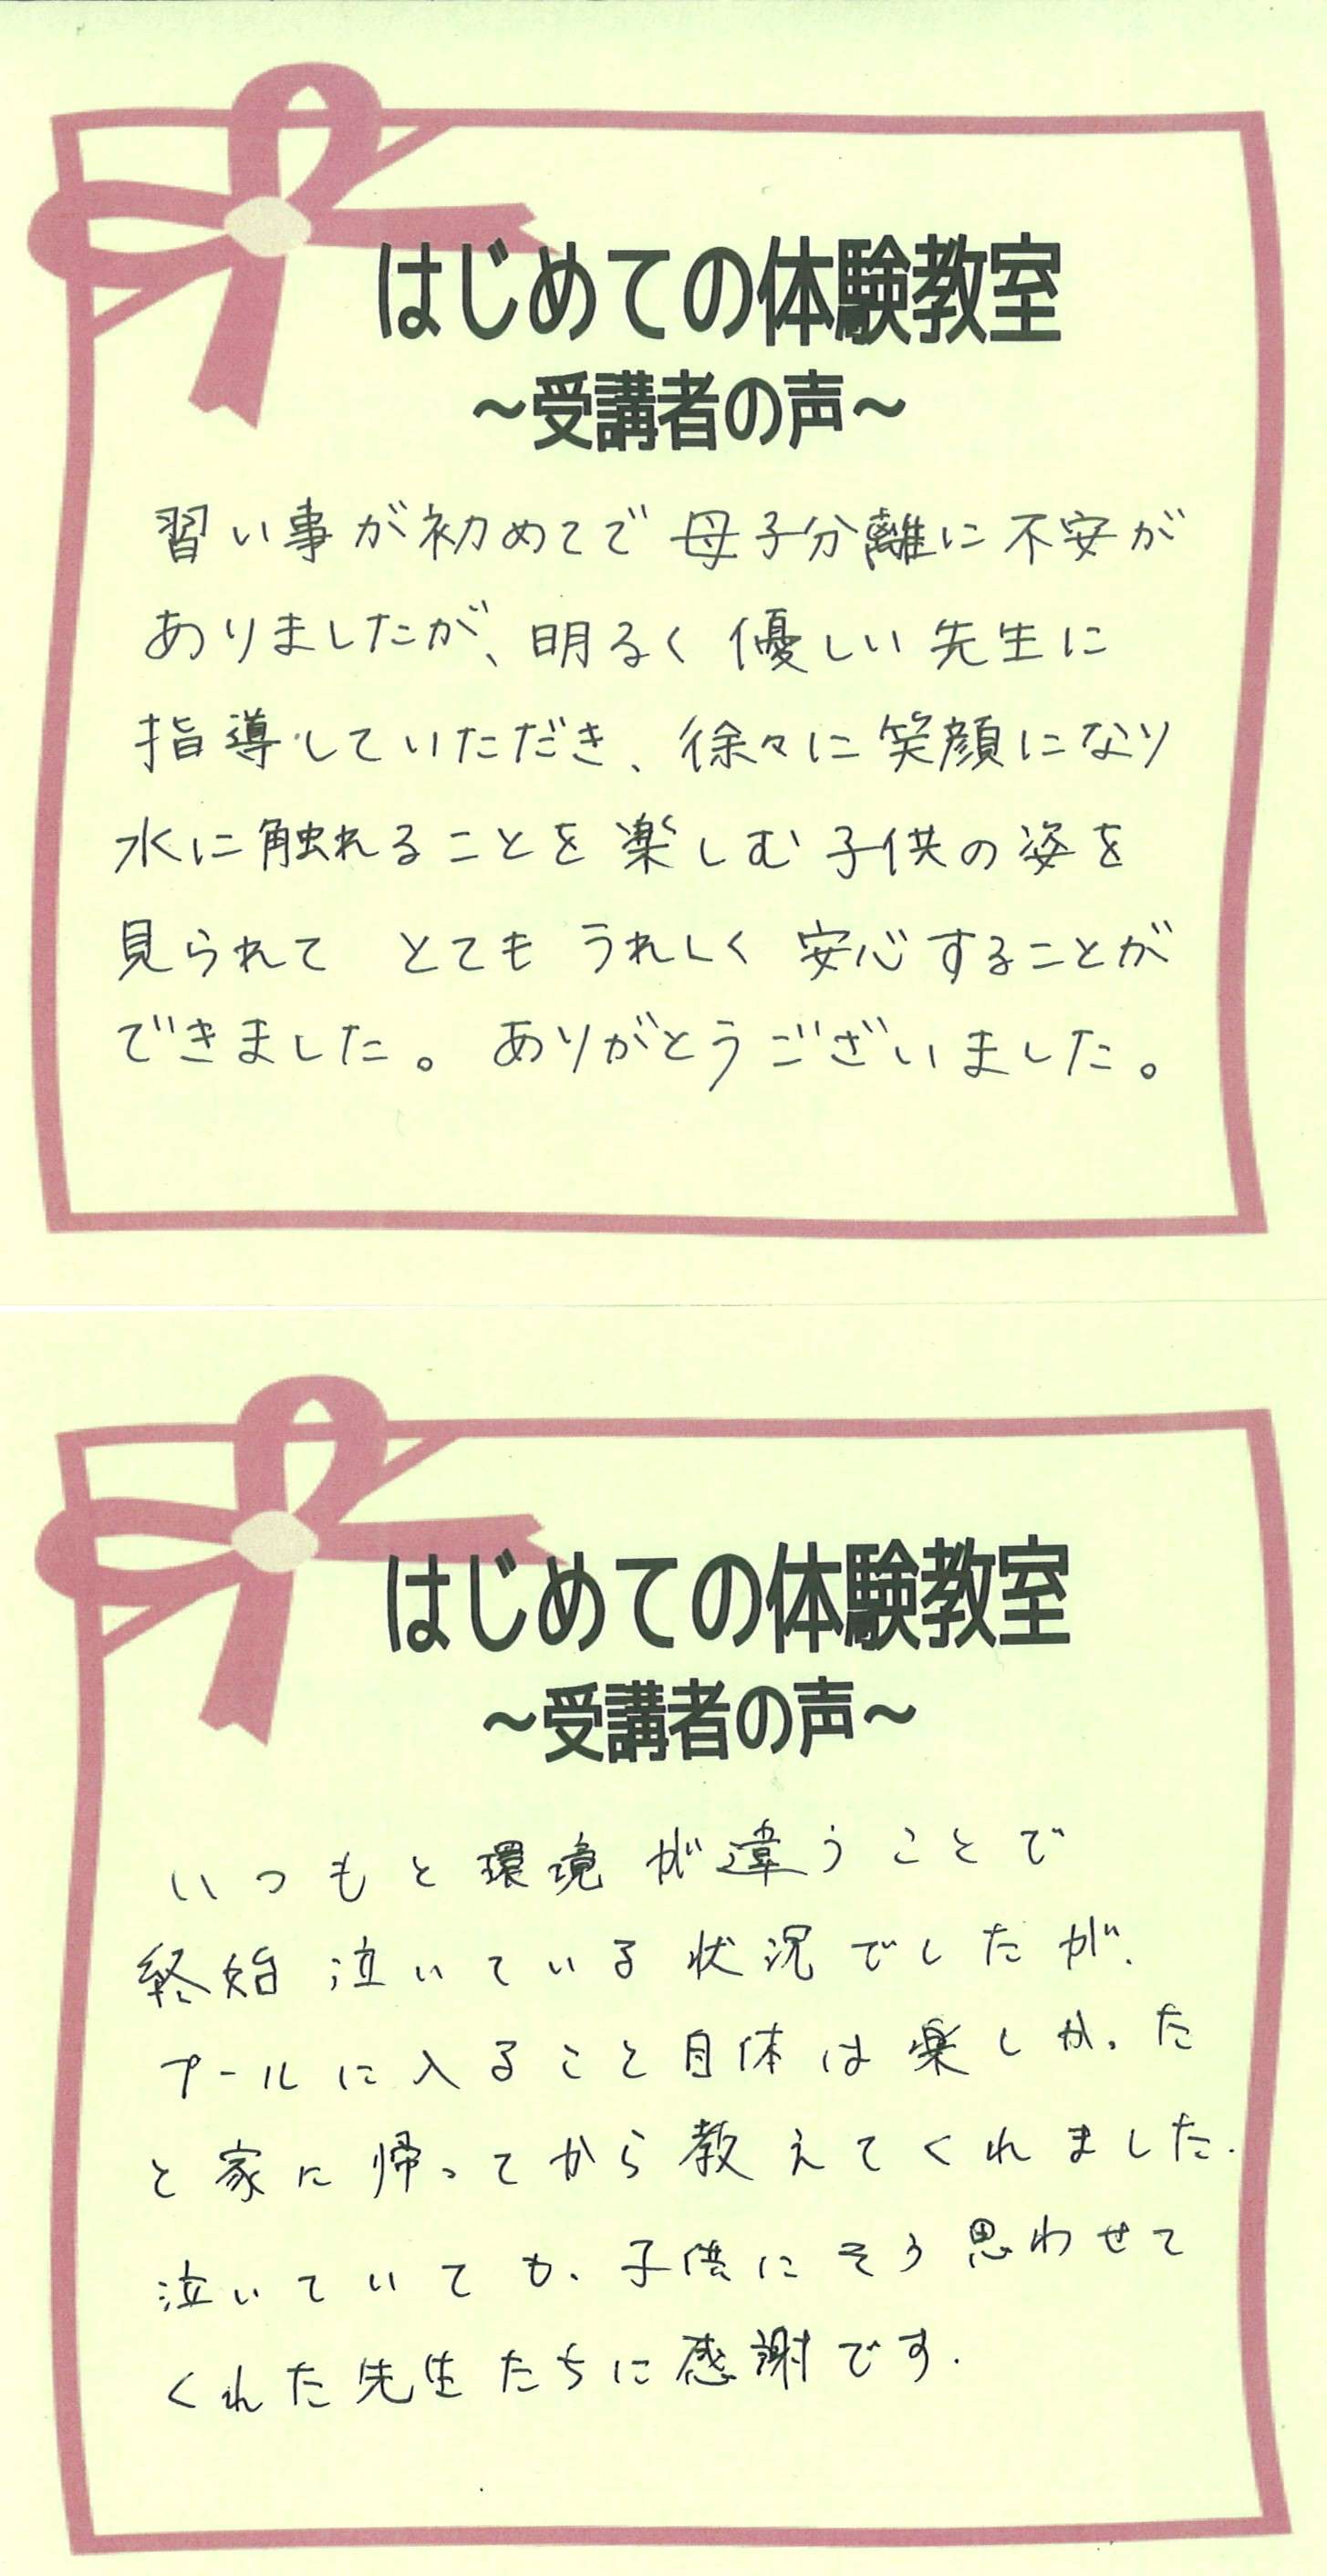 はじめての体験教室
～受講者の声～
習い事が初めてで母子分離に不安が
ありましたが、明るく優しい先生に
指導していただき、徐々に笑顔になり
水に触れることを楽しむ子供の姿を
見られて とても うれしく 安心することが
できました。ありがとうございました。
はじめての体験教室
～受講者の声～
いつもと環境が違うことで
終始泣いている状況でしたが、
プールに入ること自体は楽しかった
と家に帰ってから教えてくれました.
泣いていても、子供にそう思わせて
くれた先生たちに感謝です.